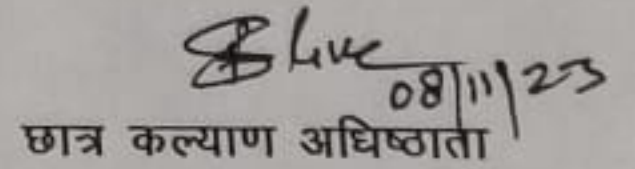 08/11/23
छात्र कल्याण अधिष्ठाता